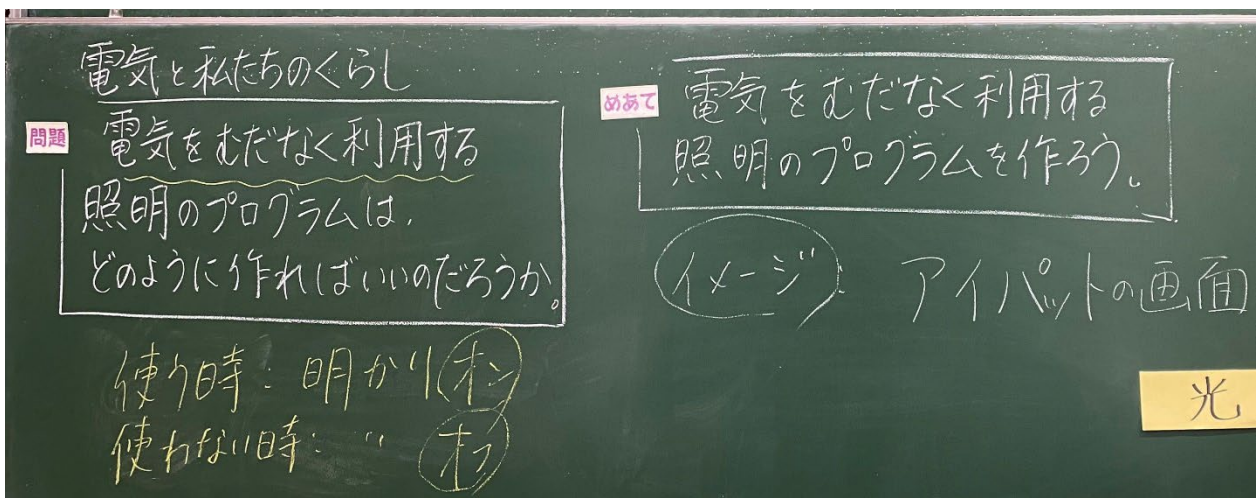 電気と私たちのくらし
問題
電気をむだなく利用する
照明のプログラムは、
どのように作ればいいのだろうか。
使う時：明かりオン
使わない時：〃 オフ
めあて
電気をむだなく利用する
照明のプログラムを作ろう。
イメージ：アイパットの画面
光